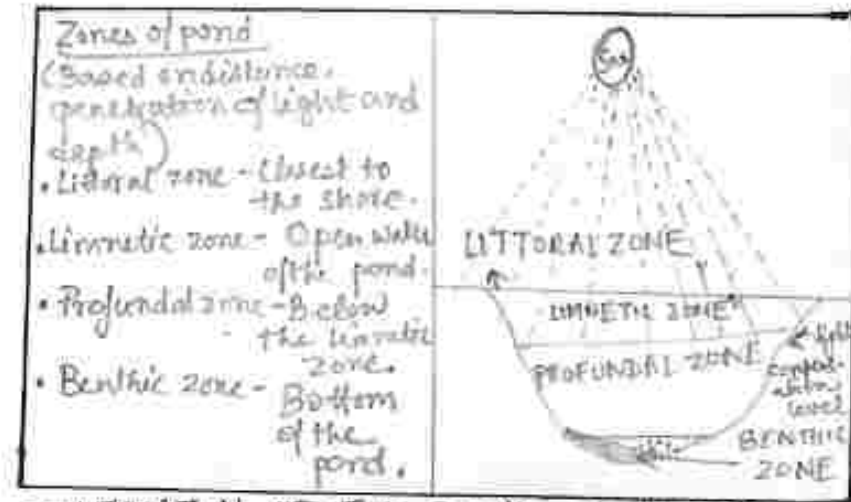 Zones of pond
(Based on distance,
penetration of light and
depth)
• Littoral zone - Closest to
the shore.
• Limnetic zone - Open water
of the pond.
• Profundal zone - Below
the limnetic
zone.
• Benthic zone - Bottom
of the
pond.
Sun
LITTORAL ZONE
LIMNETIC ZONE
PROFUNDAL ZONE
light
compens-
ation
level
BENTHIC
ZONE